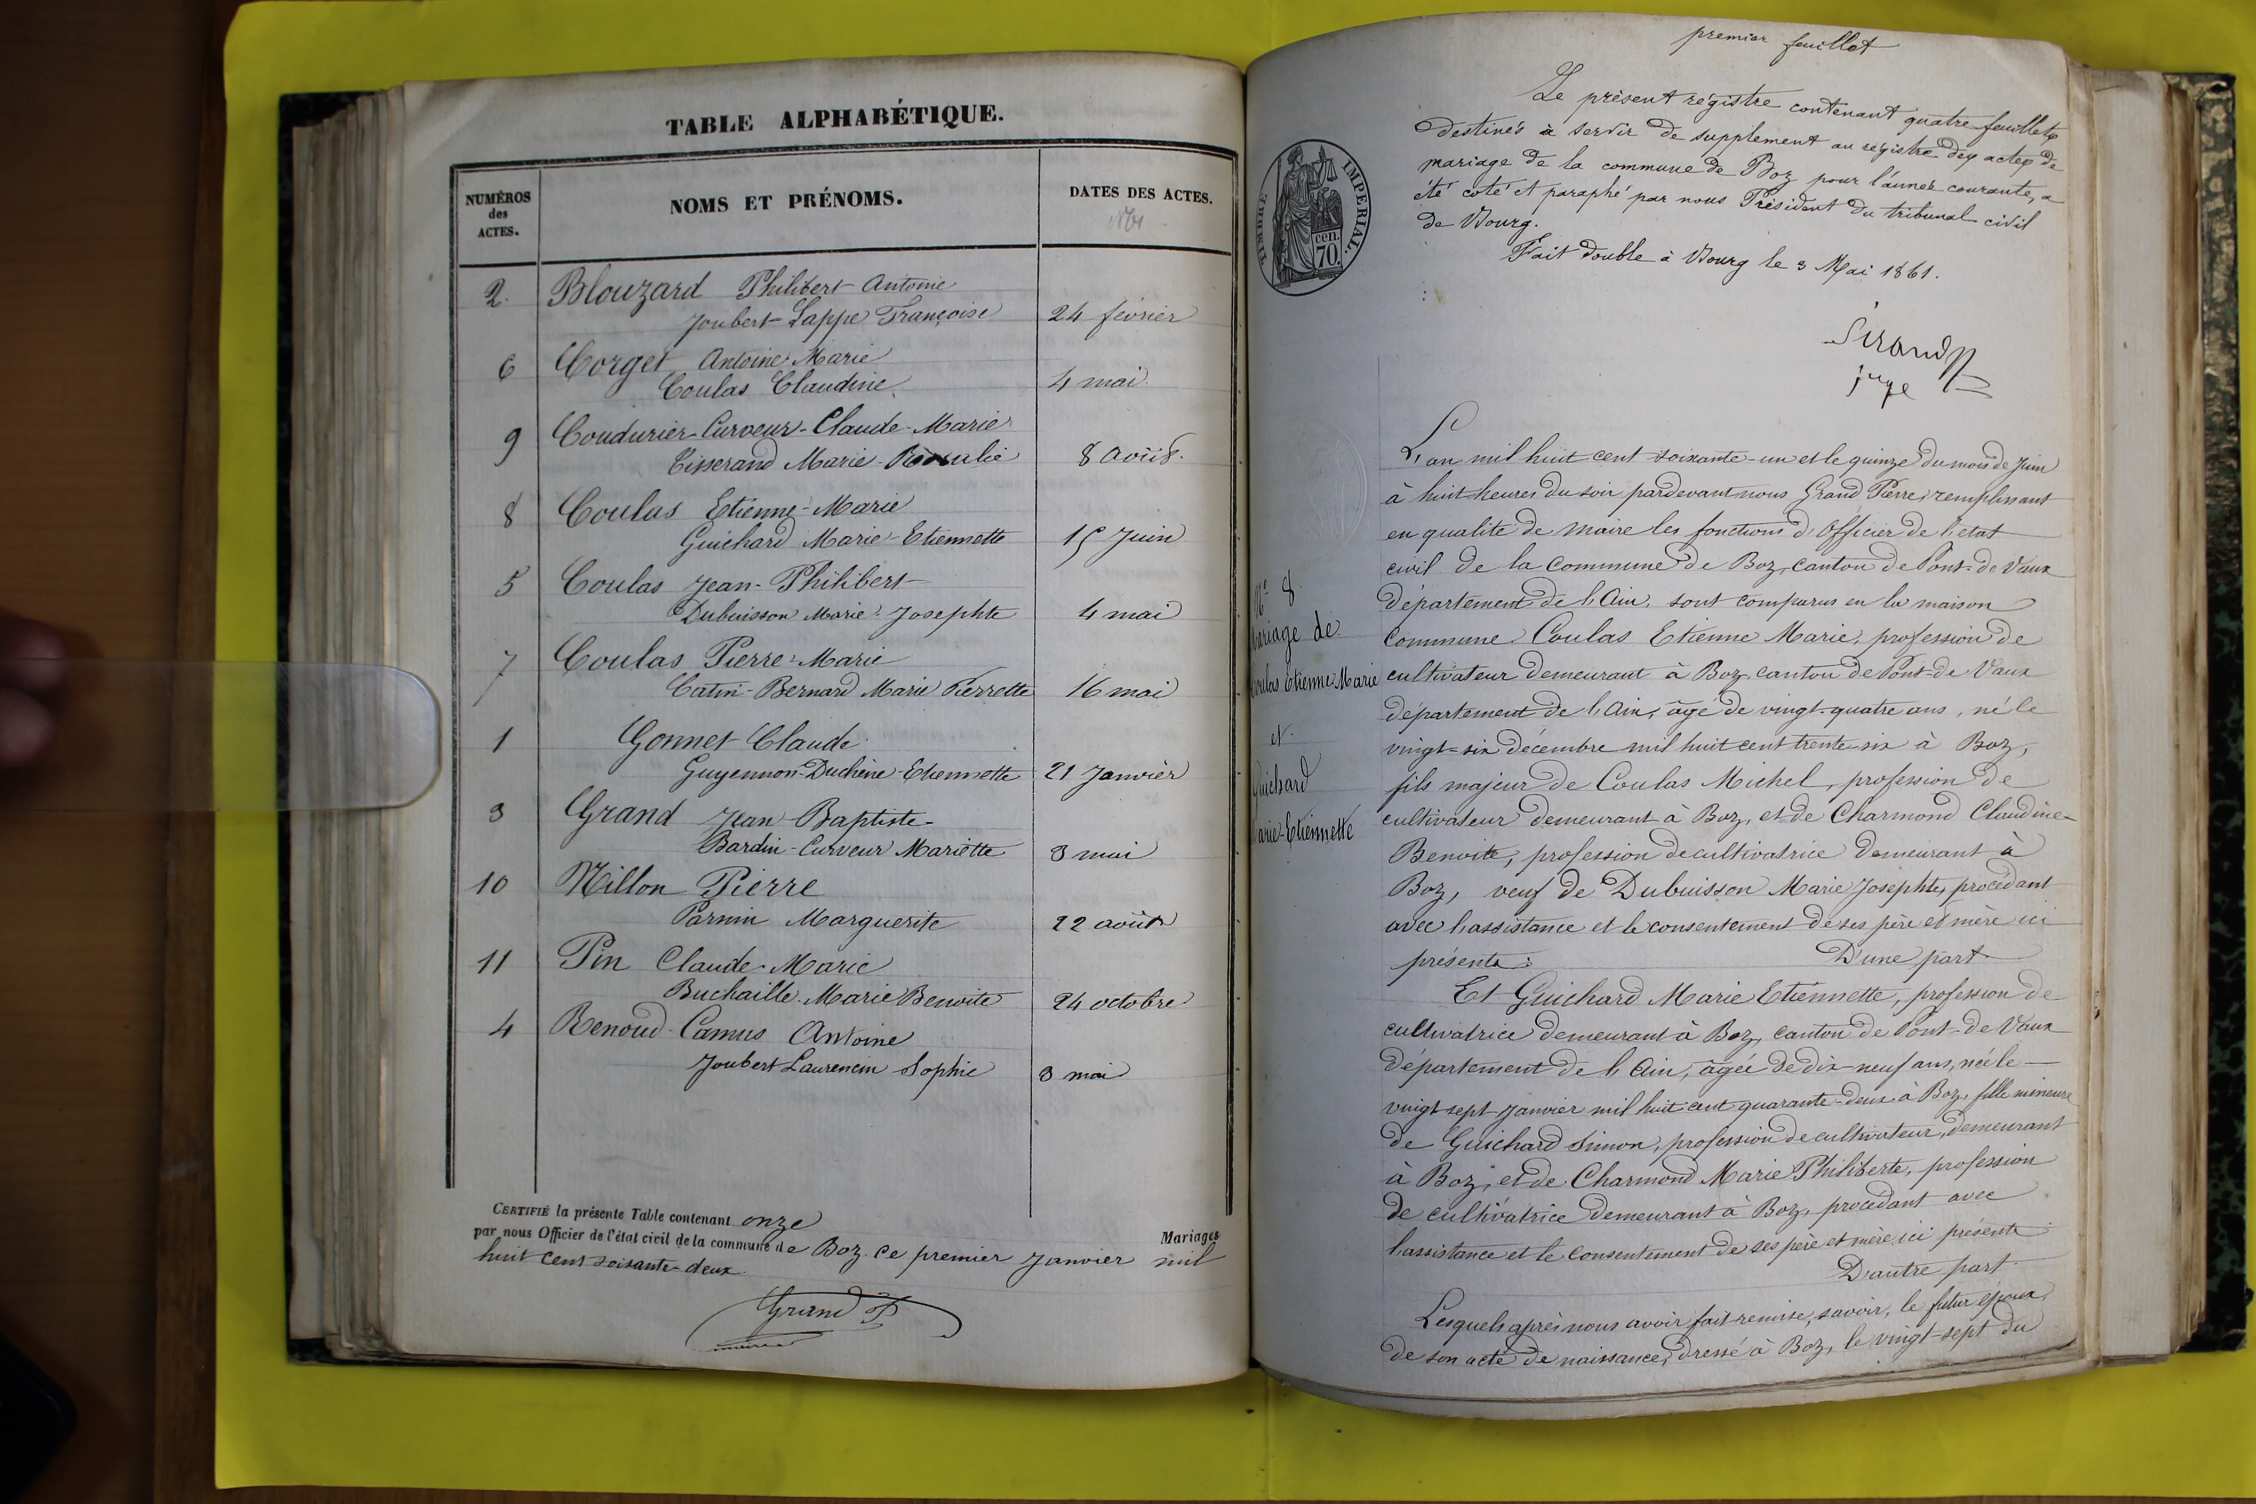 TABLE ALPHABÉTIQUE.
NUMÉROS des ACTES.
NOMS ET PRÉNOMS.
DATES DES ACTES.
2. Blouzard Philibert Antoine
Joubert-Lappe Françoise 24 février
6 Corget Antoine Marie
Coulas Claudine. 4 mai
9 Coudurier-Curveur-Claude-Marie
Tisserand Marie 8 août.
8 Coulas Etienne-Marie
Guichard Marie-Etiennette 15 Juin
5 Coulas Jean-Philibert
Dubuisson Marie-Josephte 4 mai
7 Coulas Pierre-Marie
Catin-Bernard Marie Pierrette 16 mai
1 Gonnet Claude
Guyennon-Duchêne-Etiennette 21 Janvier
3 Grand Jean Baptiste
Bardin-Curveur Mariette 3 mai
10 Nillon Pierre
Parnin Marguerite 22 août
11 Pin Claude-Marie
Buchaille Marie Benoite 24 octobre
4 Renoud-Camus Antoine
Joubert Laurencin Sophie 3 mai
CERTIFIÉ la présente Table contenant onze Mariages
par nous Officier de l'état civil de la commune de Boz ce premier Janvier mil
huit cent soixante-deux.
Grand P
maire
premier feuillet
Le présent régistre contenant quatre feuillets
destinés à servir de supplément au régistre des actes de
mariage de la commune de Boz pour l'année courante, a
été coté et paraphé par nous Président du tribunal civil
de Bourg.
Fait double à Bourg le 3 Mai 1861.
TIMBRE IMPERIAL.
cen.
70.
Sirand
juge
L'an mil huit cent soixante-un et le quinze du mois de Juin
à huit heures du soir pardevant nous Grand Pierre remplissant
en qualité de maire les fonctions d'Officier de l'état
civil de la commune de Boz, canton de Pont-de-Vaux
département de l'Ain, sont comparus en la maison
commune Coulas Etienne Marie, profession de
cultivateur demeurant à Boz, canton de Pont-de-Vaux
département de l'Ain, âgé de vingt-quatre ans, né le
vingt-six décembre mil huit cent trente-six à Boz,
fils majeur de Coulas Michel, profession de
cultivateur demeurant à Boz, et de Charmond Claudine-
Benoite, profession de cultivatrice demeurant à
Boz, veuf de Dubuisson Marie Josephte, procédant
avec l'assistance et le consentement de ses père et mère ici
présents: D'une part
Et Guichard Marie Etiennette, profession de
cultivatrice demeurant à Boz, canton de Pont-de-Vaux
département de l'Ain, âgée de dix-neuf ans, née le
vingt sept Janvier mil huit cent quarante-deux à Boz, fille mineure
de Guichard Simon, profession de cultivateur, demeurant
à Boz, et de Charmond Marie Philiberte, profession
de cultivatrice demeurant à Boz, procédant avec
l'assistance et le consentement de ses père et mère ici présents
D'autre part.
Lesquels après nous avoir fait remise, savoir, le futur époux,
de son acte de naissance, dressé à Boz, le vingt-sept du
N° 8.
Mariage de
Coulas Etienne Marie
et
Guichard
Marie-Etiennette